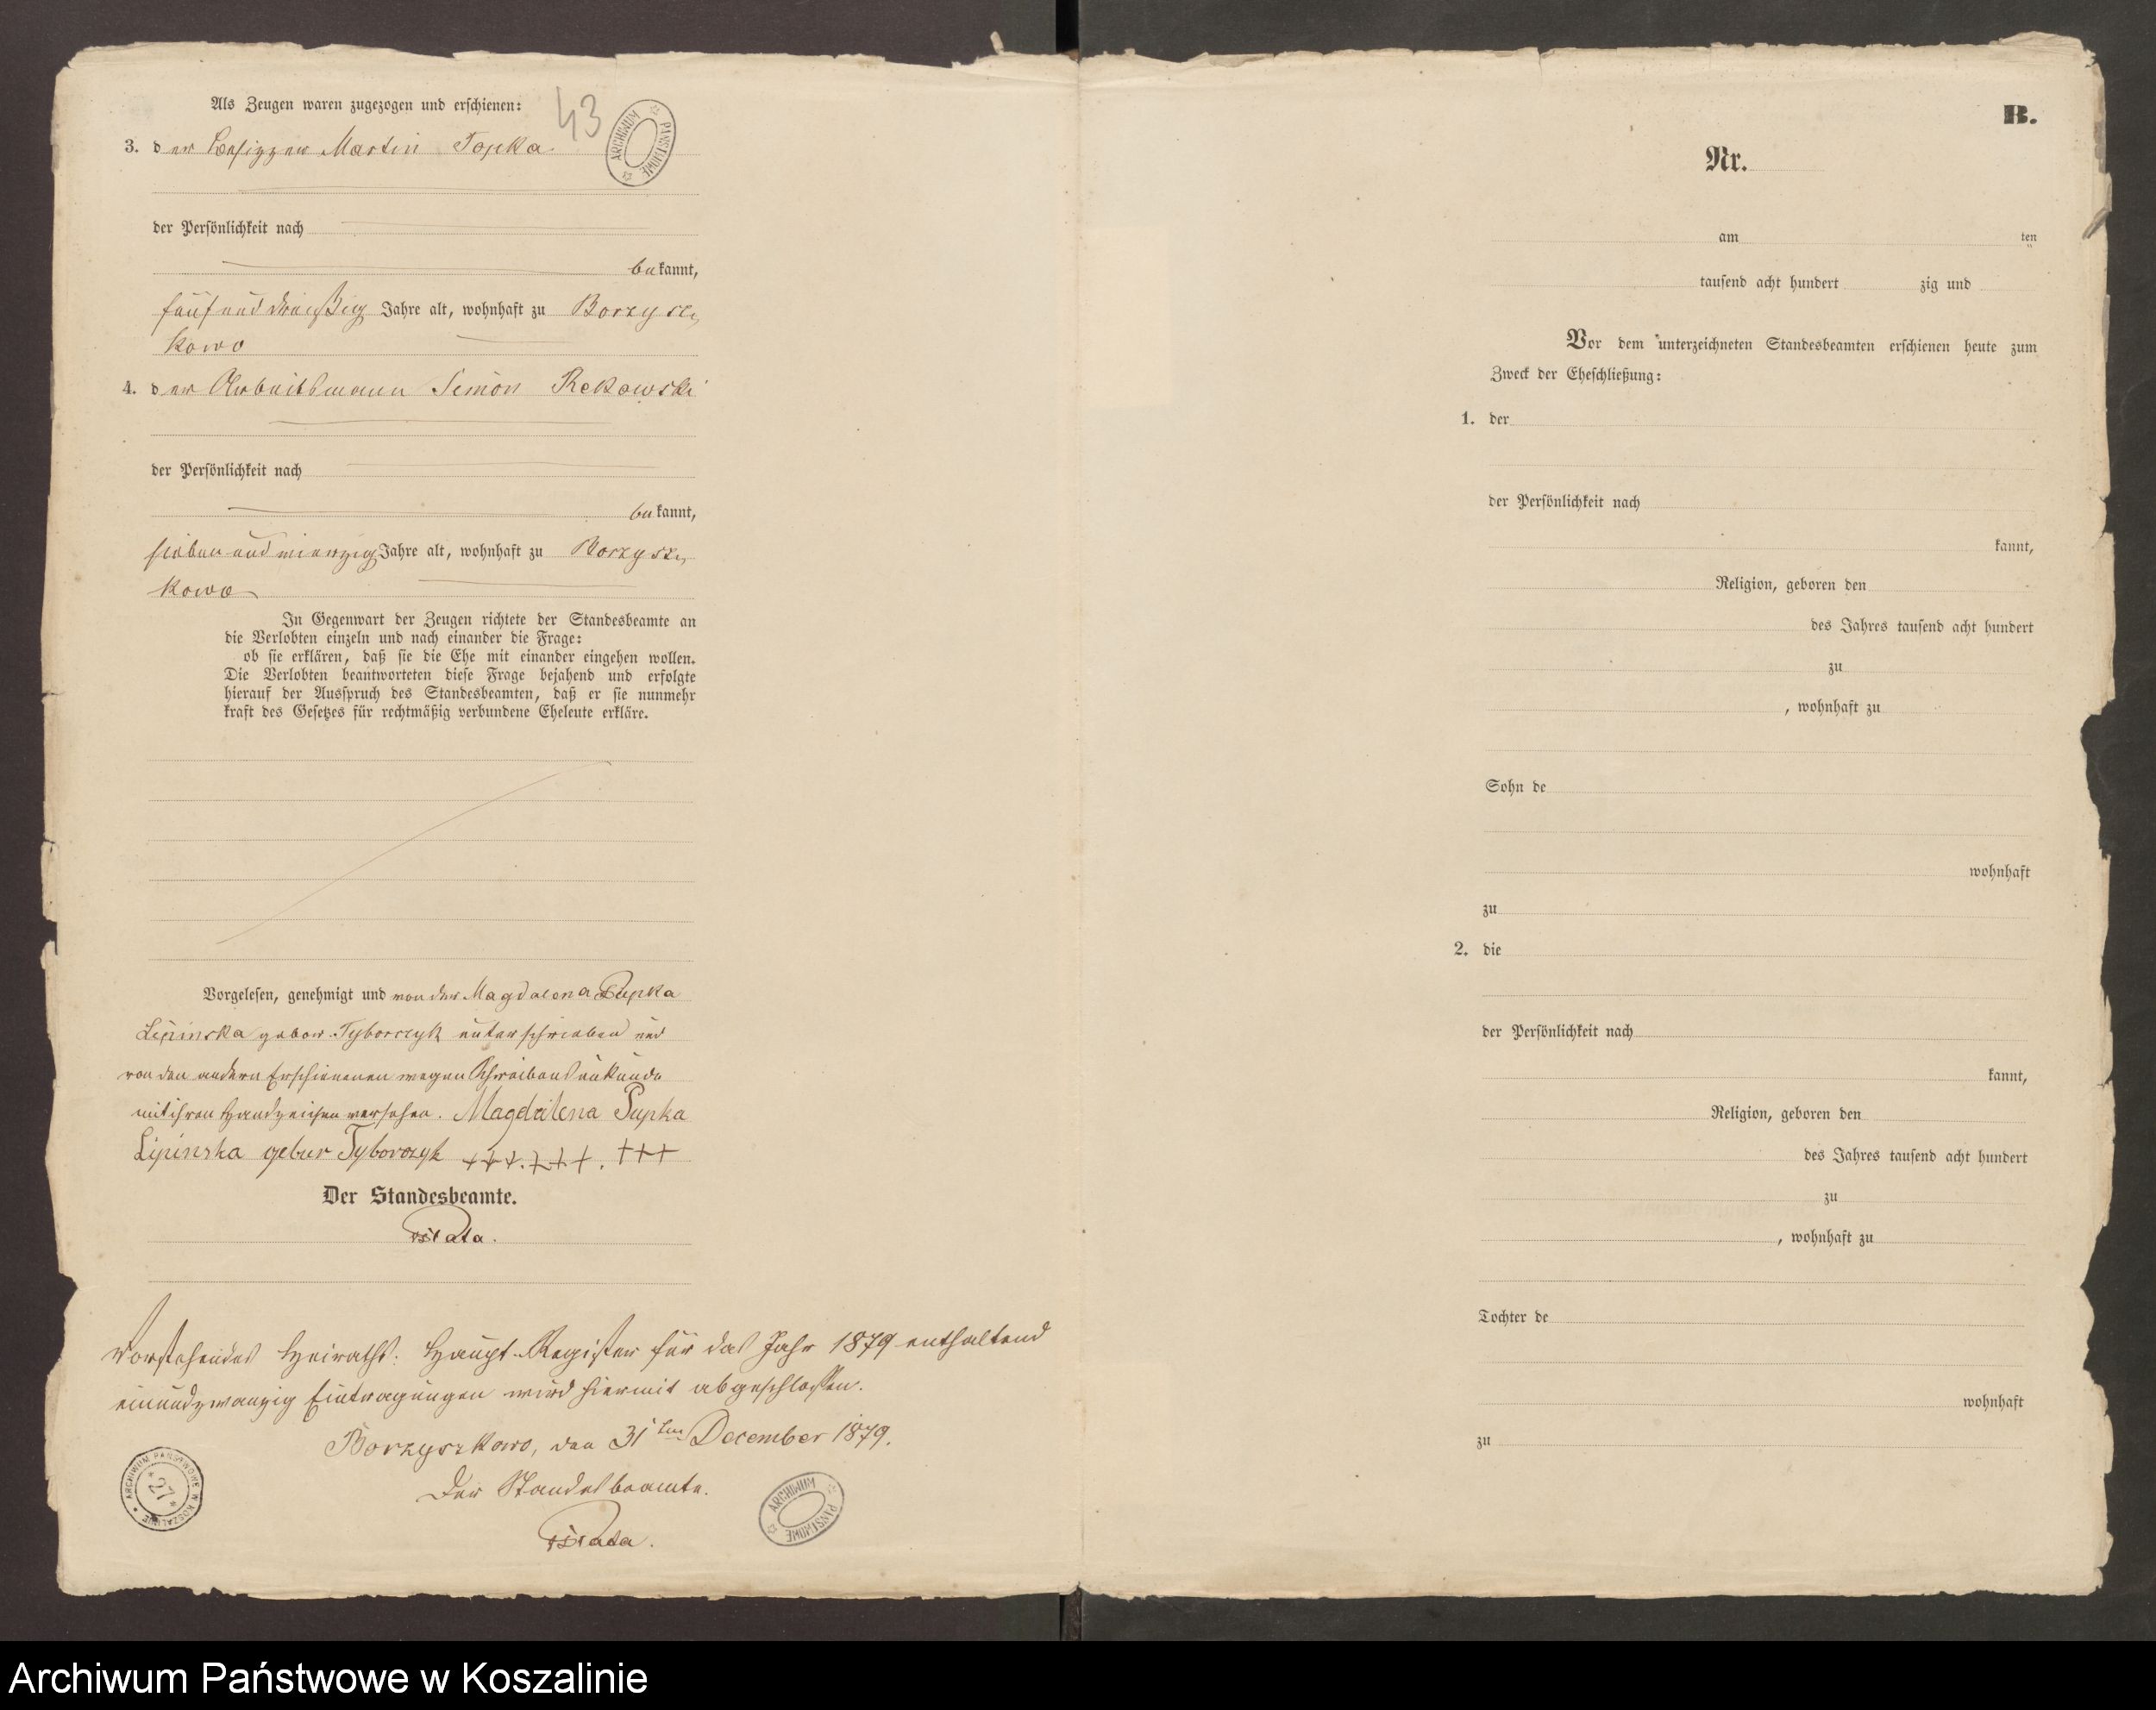 Als Zeugen waren zugezogen und erschienen:
43
3. der Besitzer Martin Topka
ARCHIWUM PAŃSTWOWE
der Persönlichkeit nach
bekannt,
fünf und dreißig Jahre alt, wohnhaft zu Borzysz-
kowo
4. der Arbeitsmann Simon Rekowski
der Persönlichkeit nach
bekannt,
sieben und vierzig Jahre alt, wohnhaft zu Borzysz-
kowo
In Gegenwart der Zeugen richtete der Standesbeamte an
die Verlobten einzeln und nach einander die Frage:
ob sie erklären, daß sie die Ehe mit einander eingehen wollen.
Die Verlobten beantworteten diese Frage bejahend und erfolgte
hierauf der Ausspruch des Standesbeamten, daß er sie nunmehr
kraft des Gesetzes für rechtmäßig verbundene Eheleute erkläre.
Vorgelesen, genehmigt und von der Magdalena Pupka
Lipinska gebor. Tyborczyk unterschrieben und
von den andern Erschienenen wegen Schreibensunkunde
mit ihren Handzeichen versehen. Magdalena Pupka
Lipinska gebur Tyborczyk +++.+++.+++
Der Standesbeamte.
Vorstehendes Heiraths-Haupt-Register für das Jahr 1879 enthaltend
einundzwanzig Eintragungen wird hiermit abgeschlossen.
Borzyszkowo, den 31ten December 1879.
Der Standesbeamte.
ARCHIWUM PAŃSTWOWE W KOSZALINIE
27
ARCHIWUM PAŃSTWOWE
B.
Nr.
am ten
tausend acht hundert zig und
Vor dem unterzeichneten Standesbeamten erschienen heute zum
Zweck der Eheschließung:
1. der
der Persönlichkeit nach
kannt,
Religion, geboren den
des Jahres tausend acht hundert
zu
, wohnhaft zu
Sohn de
wohnhaft
zu
2. die
der Persönlichkeit nach
kannt,
Religion, geboren den
des Jahres tausend acht hundert
zu
, wohnhaft zu
Tochter de
wohnhaft
zu
Archiwum Państwowe w Koszalinie